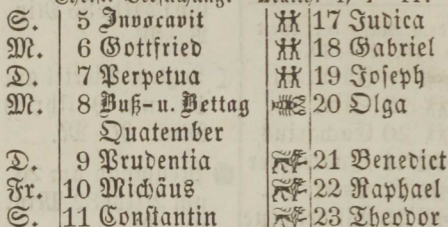 S. 5 Invocavit 17 Judica
M. 6 Gottfried 18 Gabriel
D. 7 Perpetua 19 Joseph
M. 8 Buß- u. Bettag 20 Olga
Quatember
D. 9 Prudentia 21 Benedict
Fr. 10 Michäus 22 Raphael
S. 11 Constantin 23 Theodor